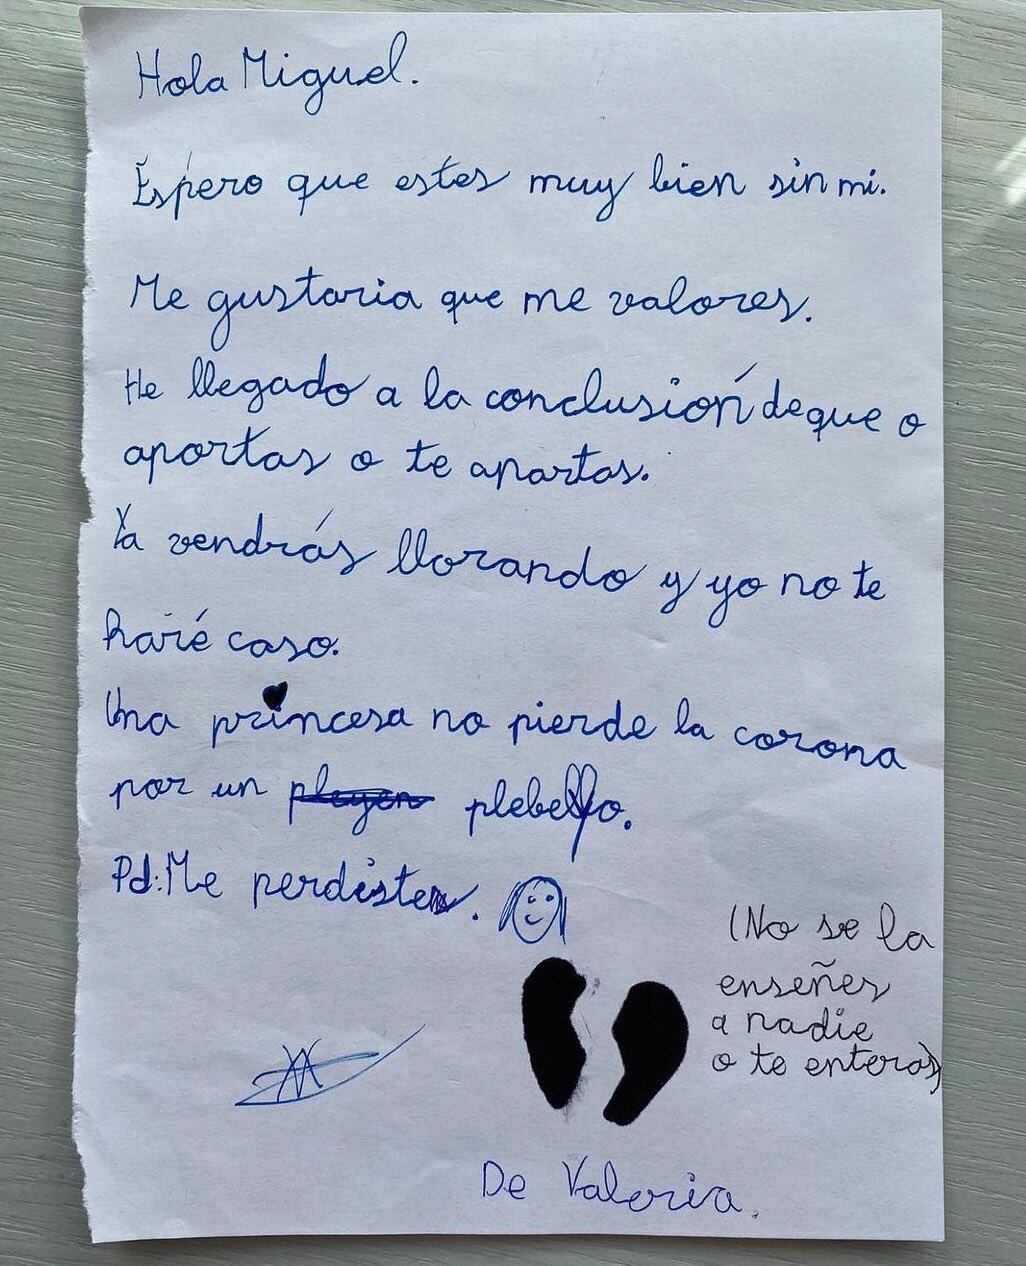 Hola Miguel.
Espero que estes muy bien sin mi.
Me gustaria que me valores.
He llegado a la conclusión de que o
aportas o te apartas.
Ya vendrás llorando y yo no te
haré caso.
Una princesa no pierde la corona
por un pleyen plebeyo.
Pd: Me perdiste.
(No se la
enseñes
a nadie
o te enteras)
De Valeria.